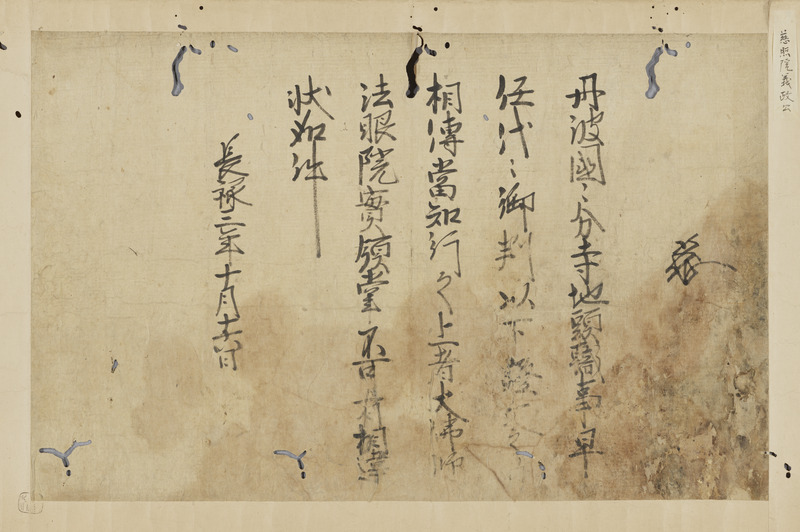 慈照院義政公
丹波國〻分寺地頭職事早
任代〻御判以下證文之
相傳當知行之上者大佛師
法眼院實領掌不可有相違
状如件
長禄二年十月十六日